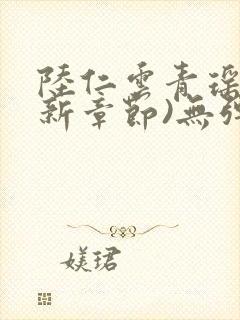 陸仁雲青瑶
新章節)無弹
媄珺